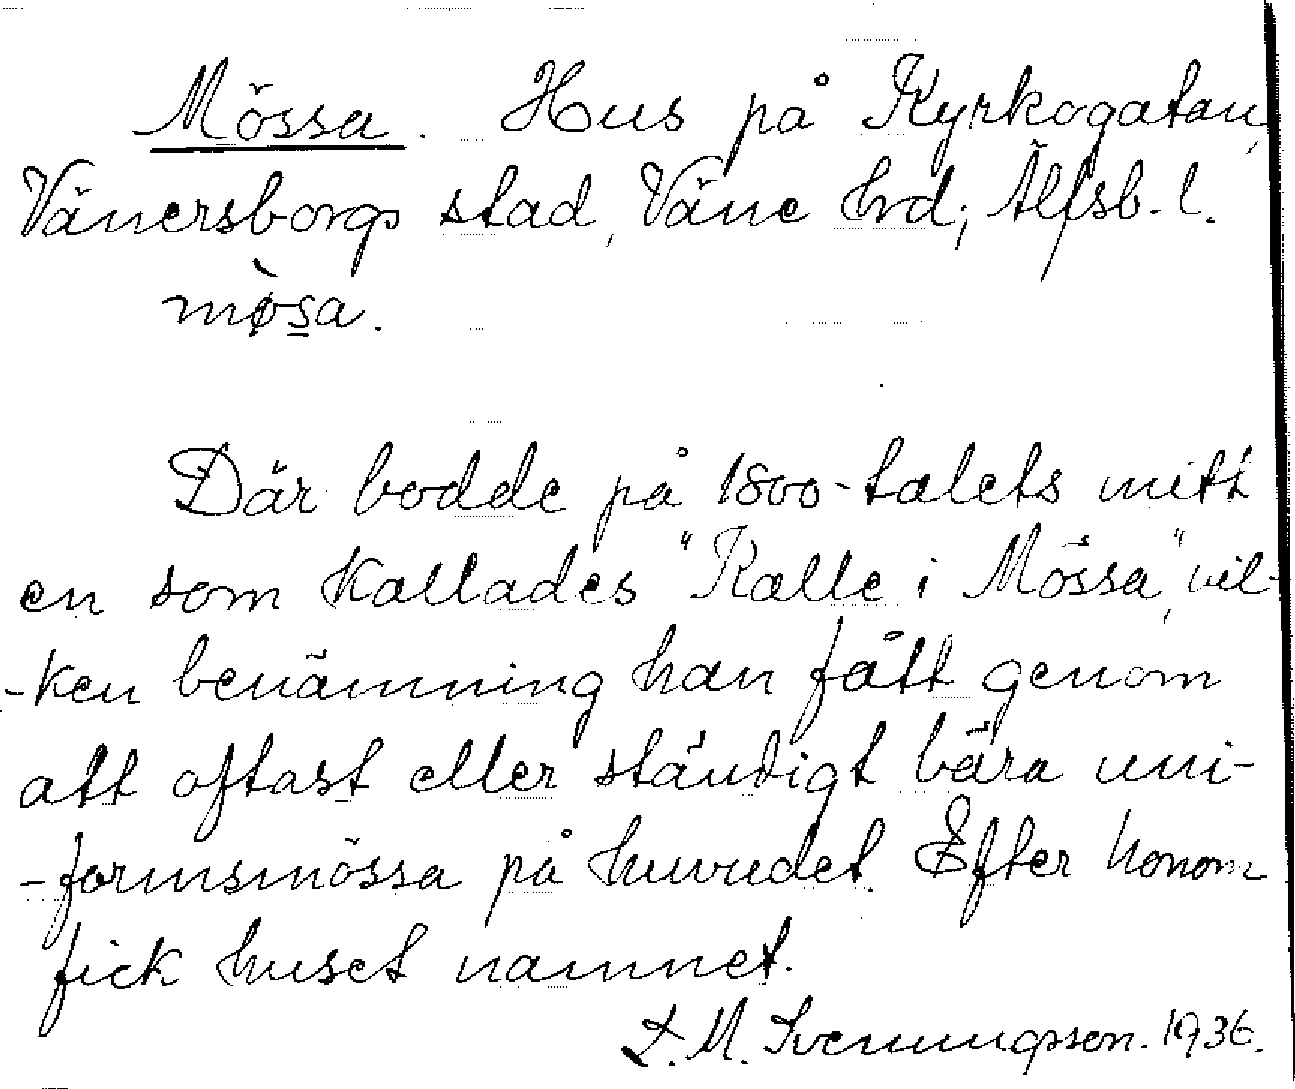 Mössa. Hus på Kyrkogatan,
Vänersborgs stad, Väne hrd; Älfsb. l.
mø̀s̲a.
Där bodde på 1800-talets mitt
en som kallades "Kalle i Mössa", vil-
-ken benämning han fått genom
att oftast eller ständigt bära uni-
-formsmössa på huvudet. Efter honom
fick huset namnet.
L. M. Svenungsson. 1936.